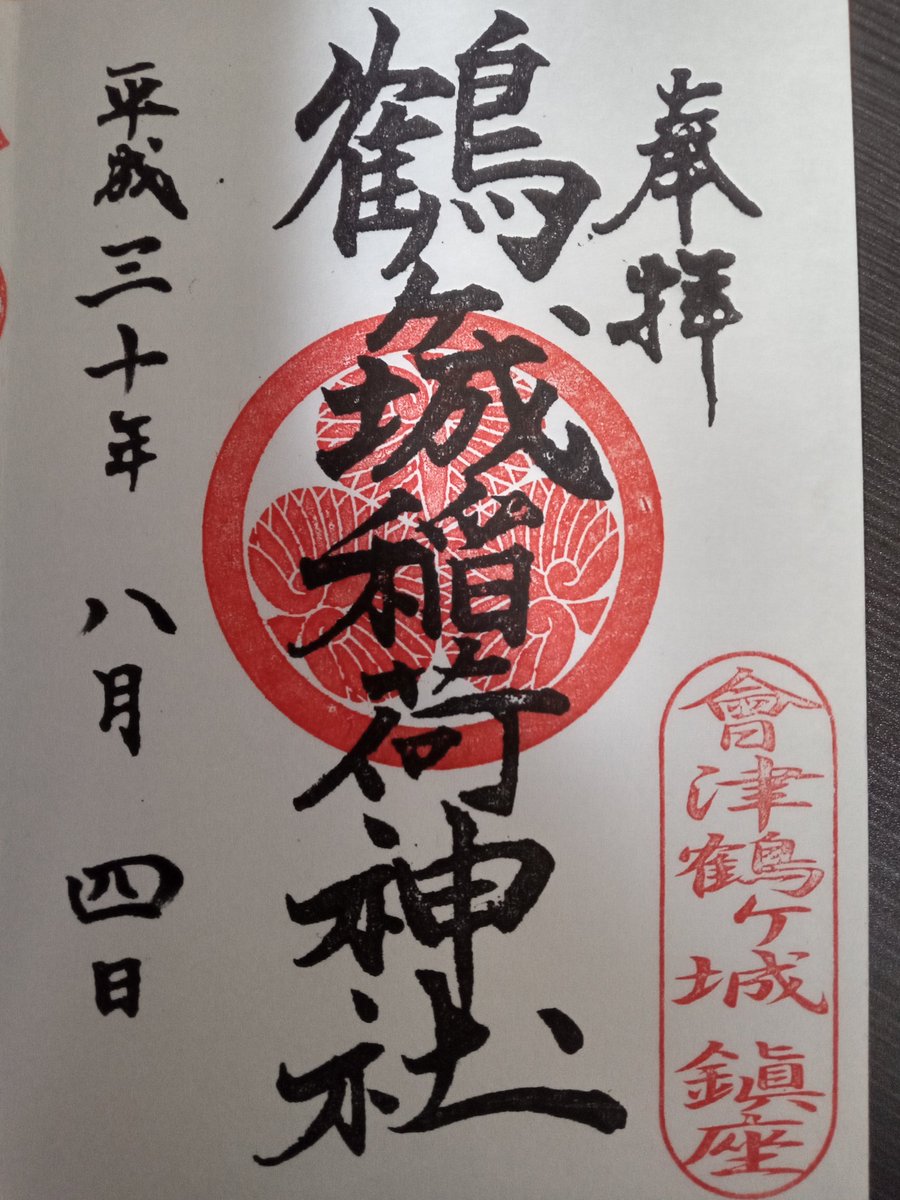 奉拝
鶴ケ城稲荷神社
平成三十年 八月 四日
會津鶴ケ城 鎮座